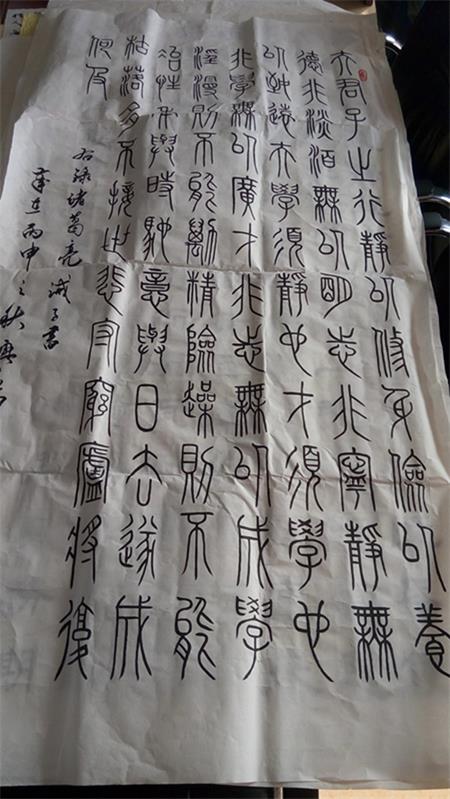 夫君子之行靜以修身儉以養
德非淡泊無以明志非寧靜無
以致遠夫學須靜也才須學也
非學無以廣才非志無以成學
淫漫則不能勵精險躁則不能
冶性年與時馳意與日去遂成
枯落多不接世悲守窮廬將復
何及
右錄诸葛亮诫子書
歲在丙申之秋